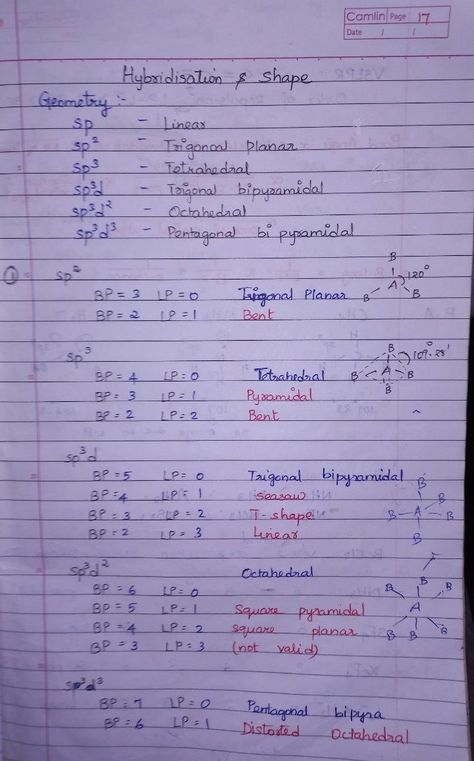 Camlin Page 17
Date / /
Hybridisation & Shape
Geometry :-
sp - Linear
sp² - Trigonal planar
sp³ - Tetrahedral
sp³d - Trigonal bipyramidal
sp³d² - Octahedral
sp³d³ - Pentagonal bi pyramidal
① sp²
BP = 3 LP = 0 Trigonal Planar
BP = 2 LP = 1 Bent
B
A 120°
B B
sp³
BP = 4 LP = 0 Tetrahedral
BP = 3 LP = 1 Pyramidal
BP = 2 LP = 2 Bent
B 109.28'
B A B
B
sp³d
BP = 5 LP = 0 Trigonal bipyramidal
BP = 4 LP = 1 seasaw
BP = 3 LP = 2 T-shape
BP = 2 LP = 3 Linear
B
B A B
B B
sp³d² Octahedral
BP = 6 LP = 0
BP = 5 LP = 1 square pyramidal
BP = 4 LP = 2 square planar
BP = 3 LP = 3 (not valid)
B B B
A
B B B
sp³d³
BP = 7 LP = 0 Pentagonal bipyra
BP = 6 LP = 1 Distorted Octahedral